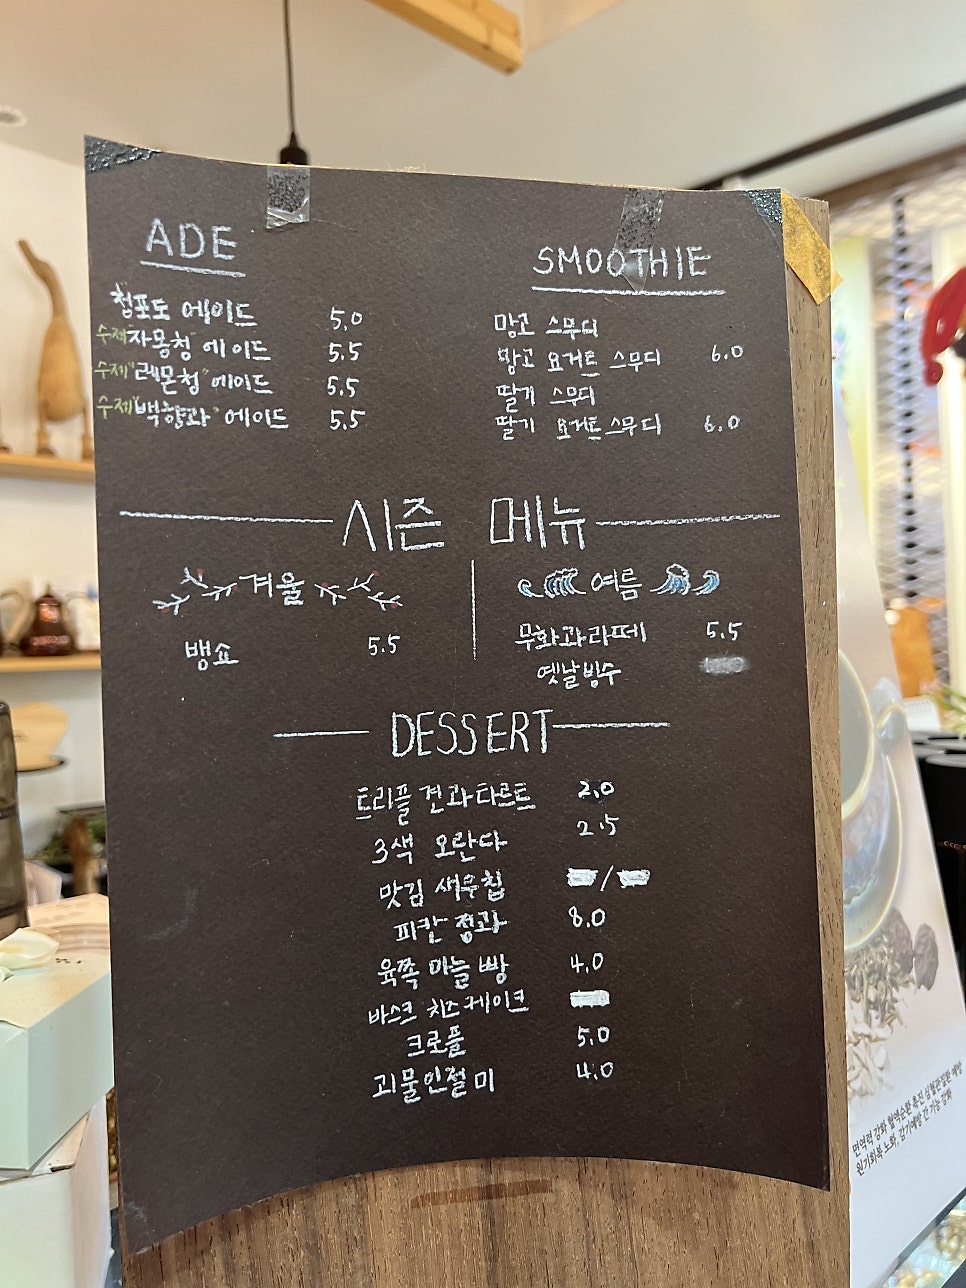 ADE
청포도 에이드 5.0
수제"자몽청" 에이드 5.5
수제"레몬청" 에이드 5.5
수제"백향과" 에이드 5.5
SMOOTHIE
망고 스무디
망고 요거트 스무디 6.0
딸기 스무디
딸기 요거트 스무디 6.0
시즌 메뉴
겨울
뱅쇼 5.5
여름
무화과라떼 5.5
옛날빙수
DESSERT
트리플 견과타르트 2.0
3색 오란다 2.5
맛김 새우칩 /
피칸 정과 8.0
육쪽 마늘빵 4.0
바스크 치즈케이크
크로플 5.0
괴물인절미 4.0
면역력 강화 혈액순환 촉진 심혈관질환 예방
원기회복 노화, 감기예방 간 기능 강화